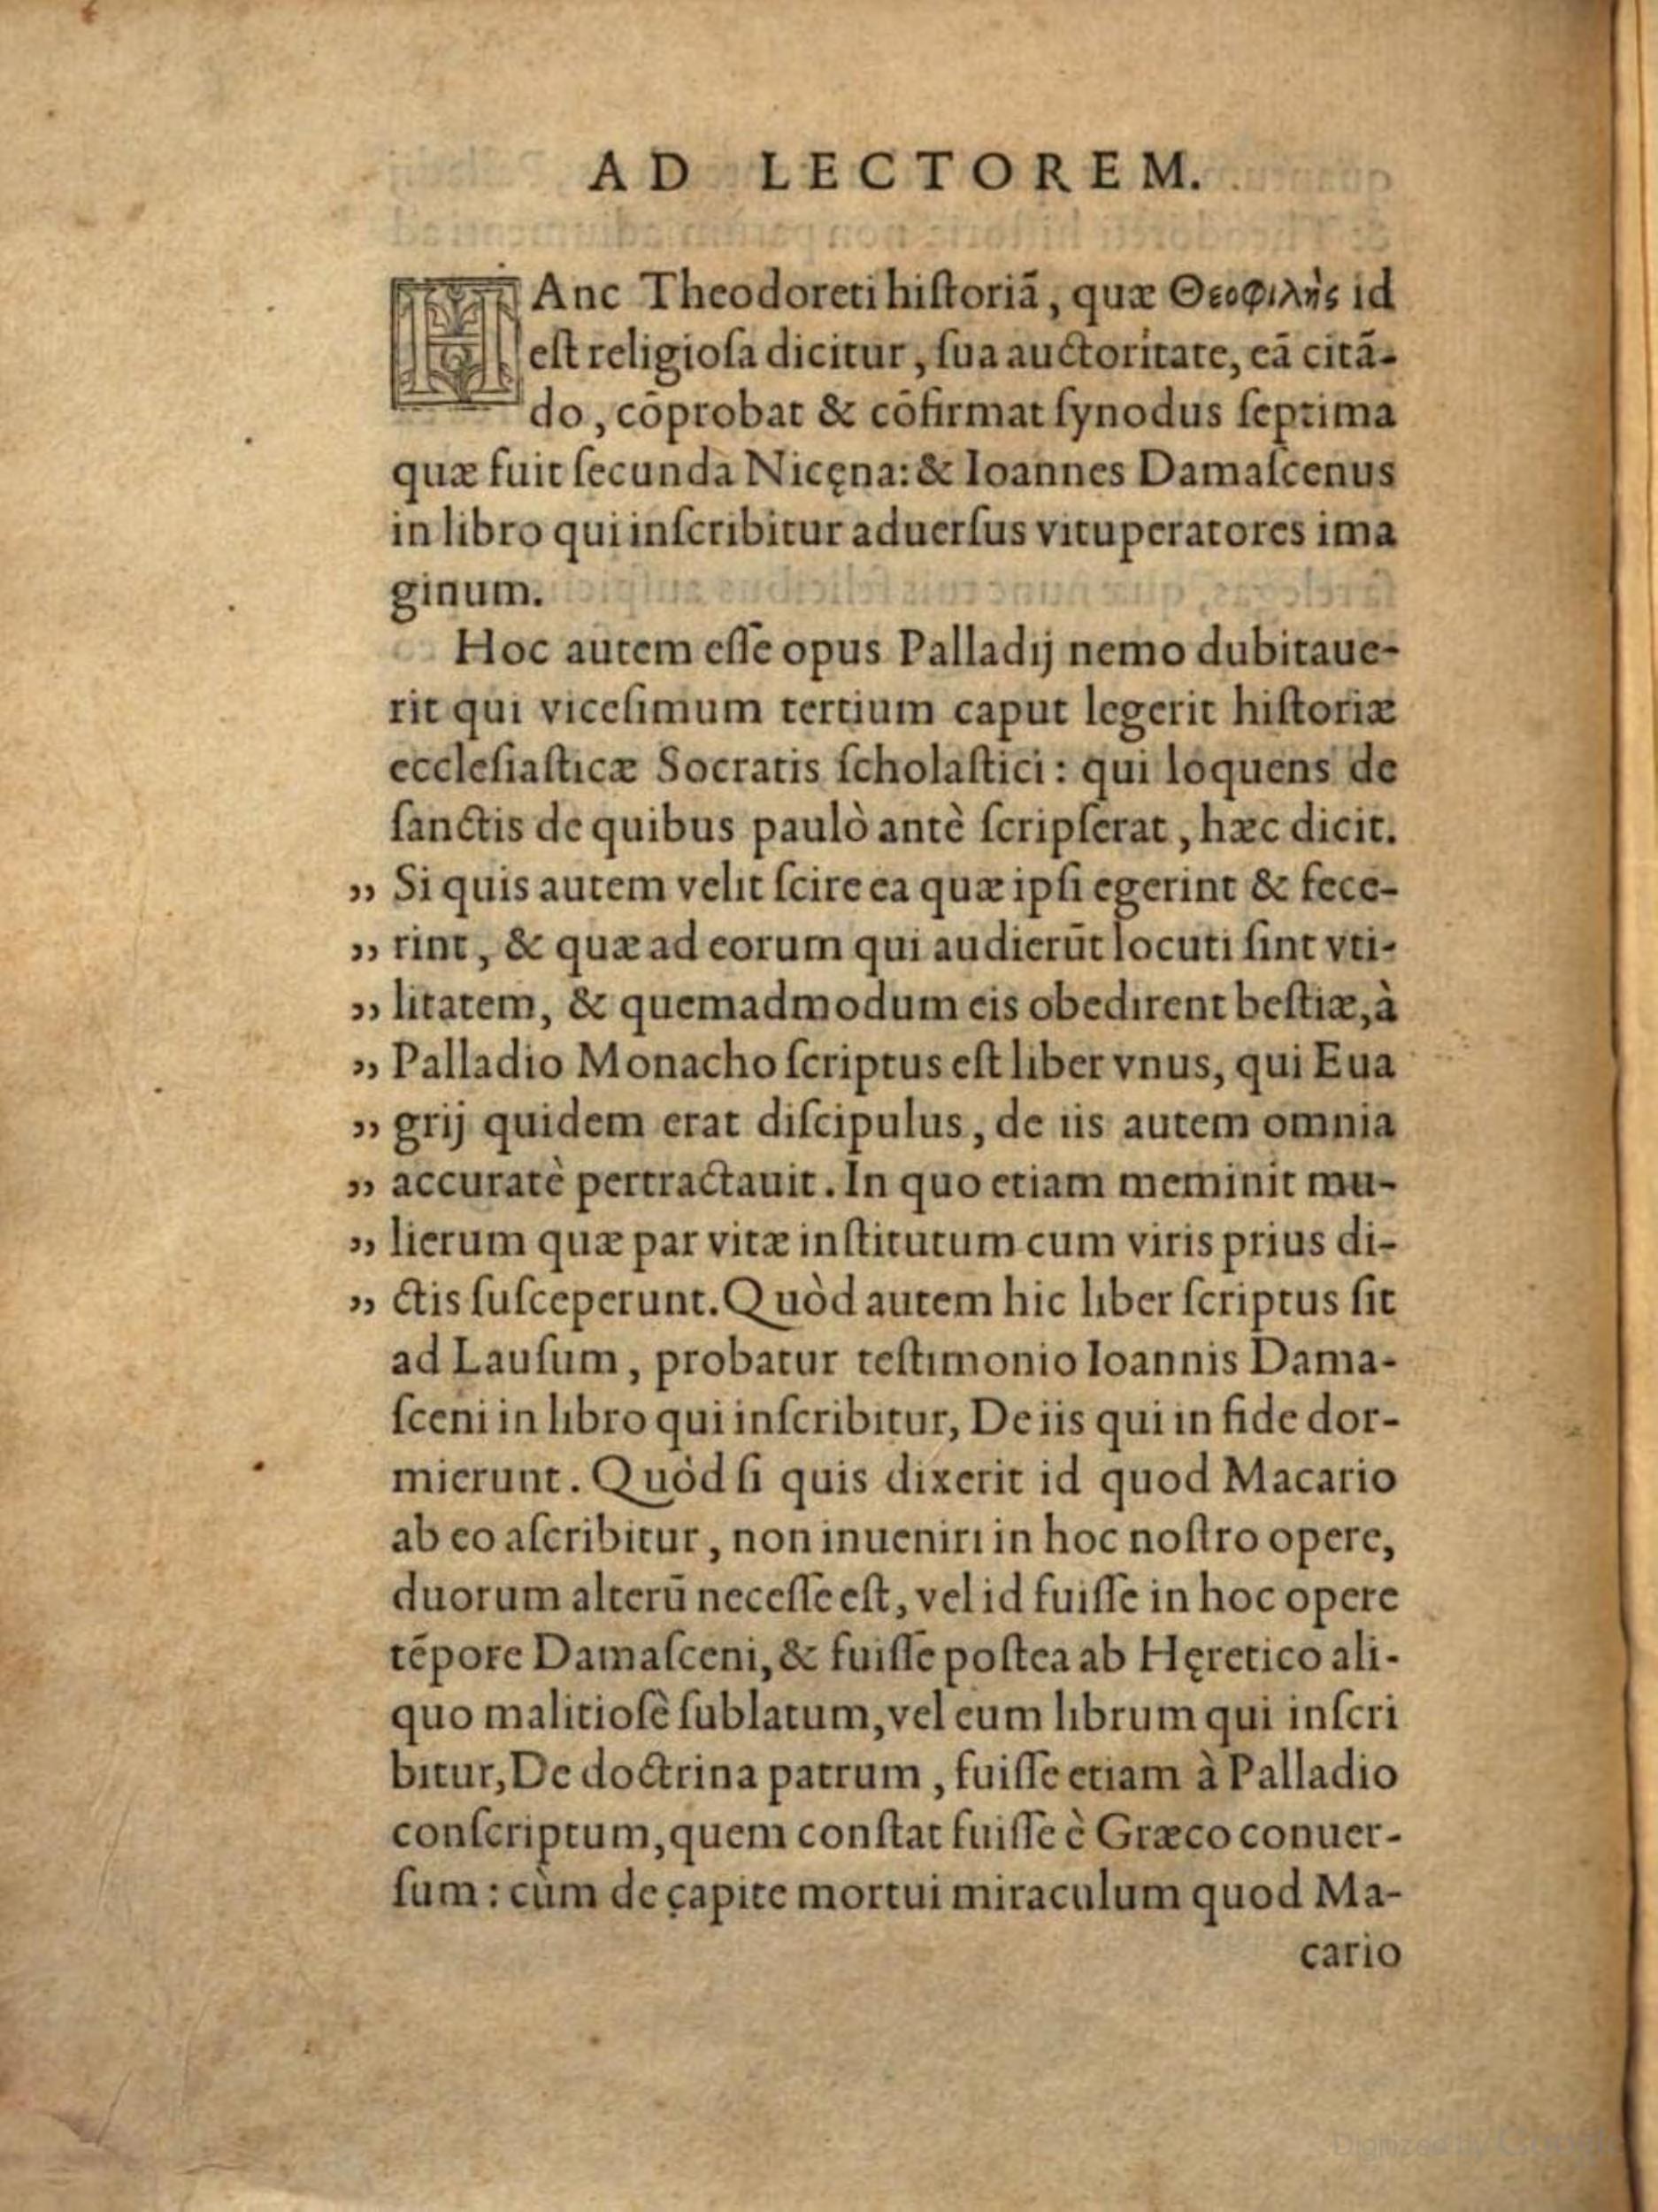 AD LECTOREM.
HAnc Theodoreti hiſtoriã, quæ Θεοφιλὴς id
eſt religioſa dicitur, ſua auctoritate, eã citã-
do, cõprobat & cõfirmat ſynodus ſeptima
quæ fuit ſecunda Nicęna: & Ioannes Damaſcenus
in libro qui inſcribitur aduerſus vituperatores ima
ginum.
Hoc autem eſſe opus Palladij nemo dubitaue-
rit qui viceſimum tertium caput legerit hiſtoriæ
eccleſiaſticæ Socratis ſcholaſtici: qui loquens de
ſanctis de quibus paulò antè ſcripſerat, hæc dicit.
,, Si quis autem velit ſcire ea quæ ipſi egerint & fece-
,, rint, & quæ ad eorum qui audierũt locuti ſint vti-
,, litatem, & quemadmodum eis obedirent beſtiæ, à
,, Palladio Monacho ſcriptus eſt liber vnus, qui Eua
,, grij quidem erat diſcipulus, de iis autem omnia
,, accuratè pertractauit. In quo etiam meminit mu-
,, lierum quæ par vitæ inſtitutum cum viris prius di-
,, ctis ſuſceperunt. Quòd autem hic liber ſcriptus ſit
ad Lauſum, probatur teſtimonio Ioannis Dama-
ſceni in libro qui inſcribitur, De iis qui in fide dor-
mierunt. Quòd ſi quis dixerit id quod Macario
ab eo aſcribitur, non inueniri in hoc noſtro opere,
duorum alterũ neceſſe eſt, vel id fuiſſe in hoc opere
tẽpore Damaſceni, & fuiſſe poſtea ab Hęretico ali-
quo malitioſè ſublatum, vel eum librum qui inſcri
bitur, De doctrina patrum, fuiſſe etiam à Palladio
conſcriptum, quem conſtat fuiſſe è Græco conuer-
ſum: cùm de capite mortui miraculum quod Ma-
cario
Digitized by Google